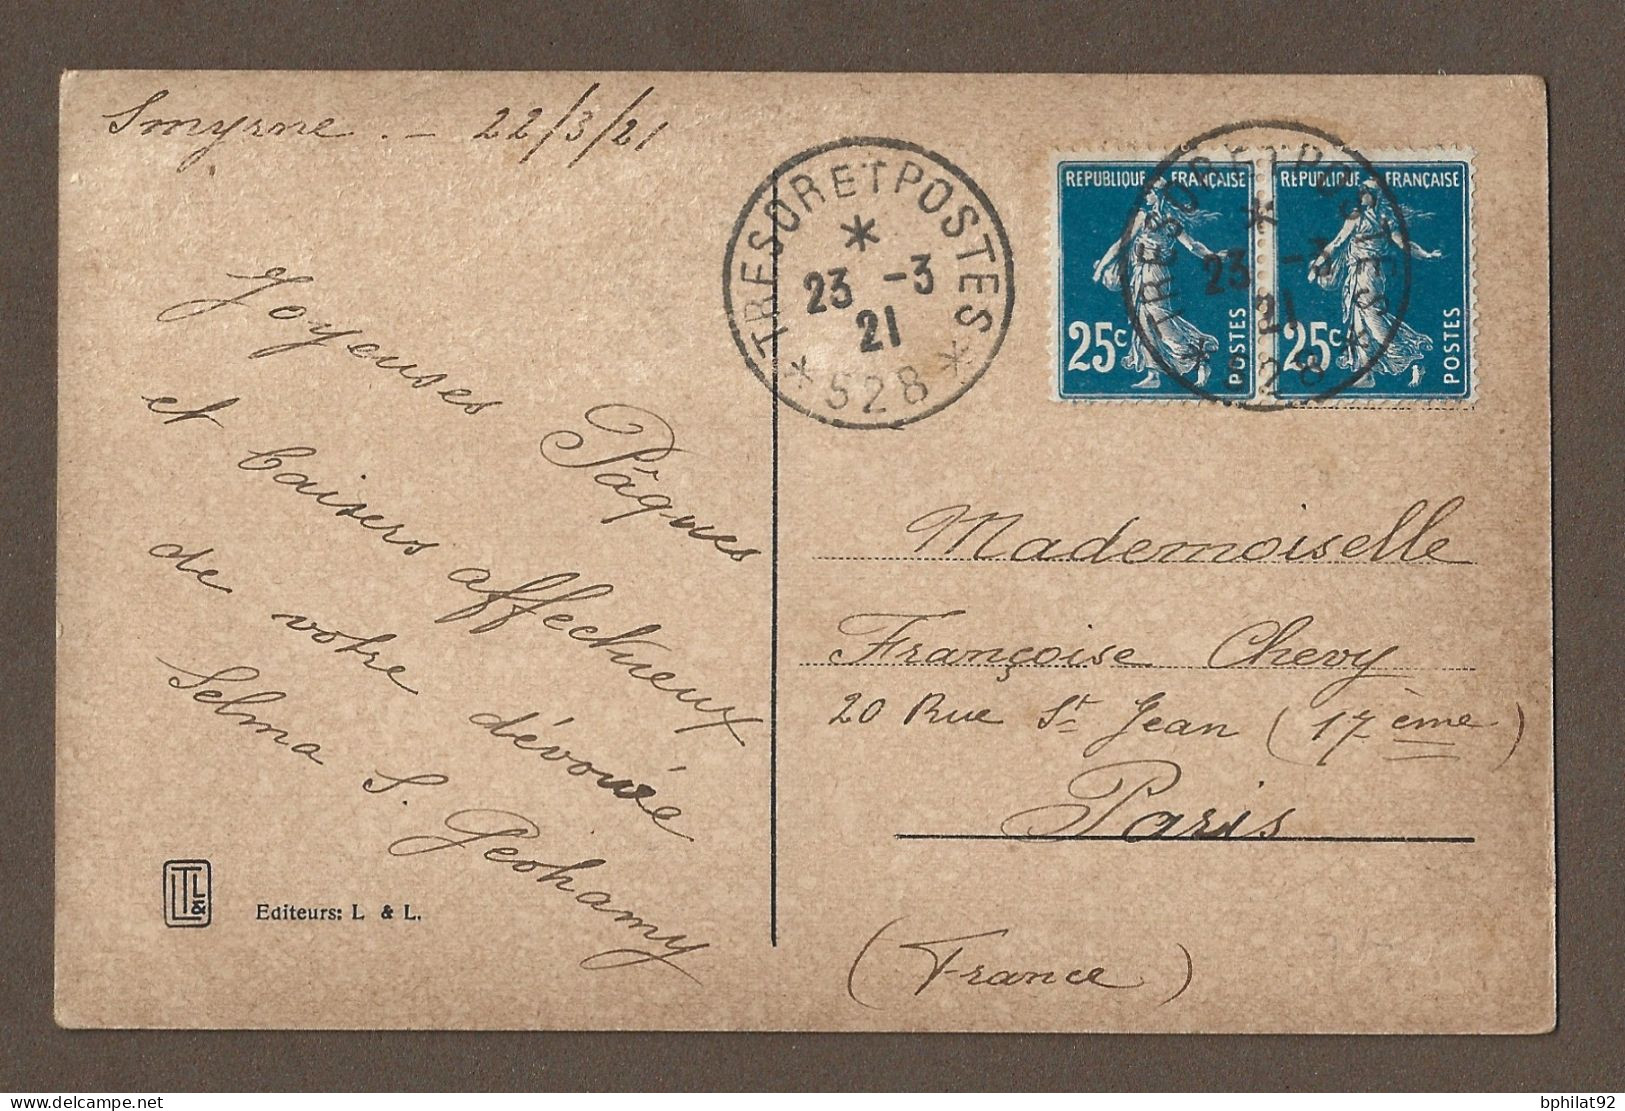 Smyrne. - 22/3/21
TRESOR ET POSTES
*
23 -3
21
* 528 *
REPUBLIQUE FRANÇAISE
25c
POSTES
REPUBLIQUE FRANÇAISE
25c
POSTES
TRESOR ET POSTES
*
23 -3
21
* 528 *
Joyeuses Pâques
et baisers affectueux
de votre dévouée
Selma S.
Mademoiselle
Françoise Chevy
20 Rue St Jean (17ème)
Paris
(France)
L&L
Editeurs: L & L.
delcampe.net
bphilat92